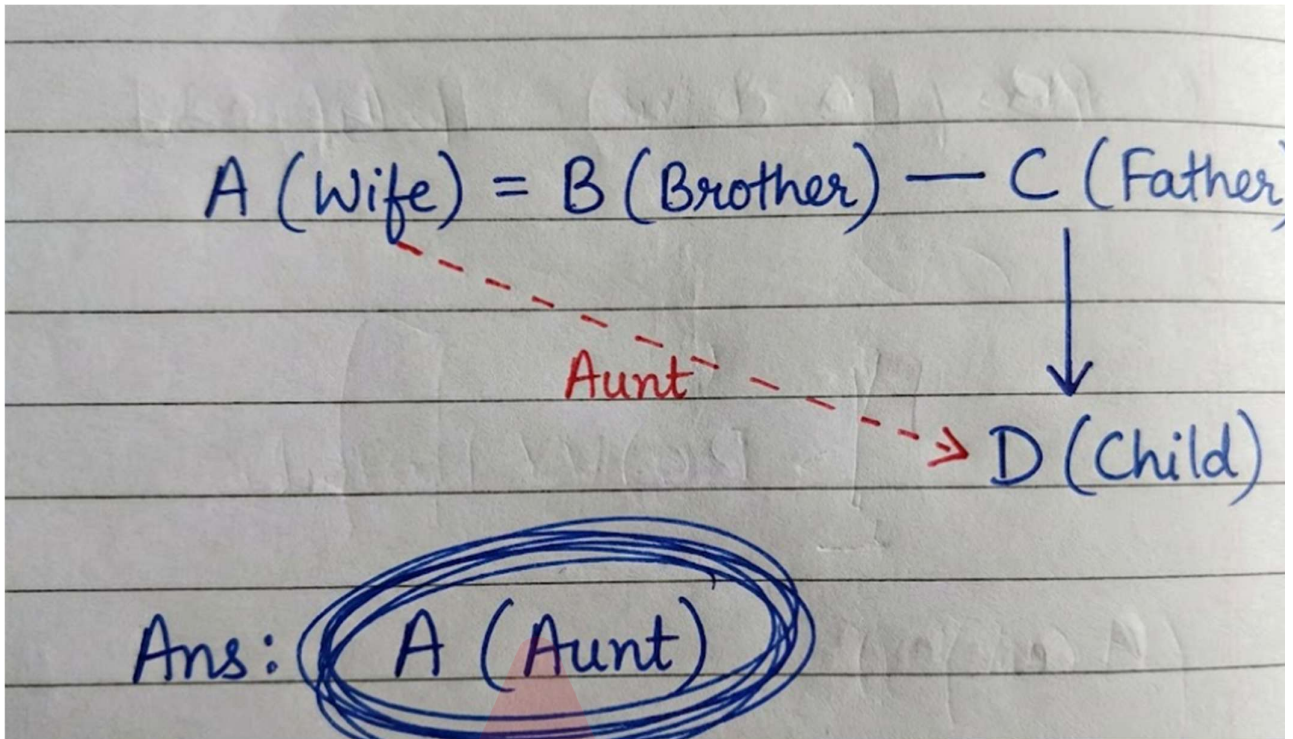 A (Wife) = B (Brother) — C (Father)
Aunt
D (Child)
Ans: A (Aunt)